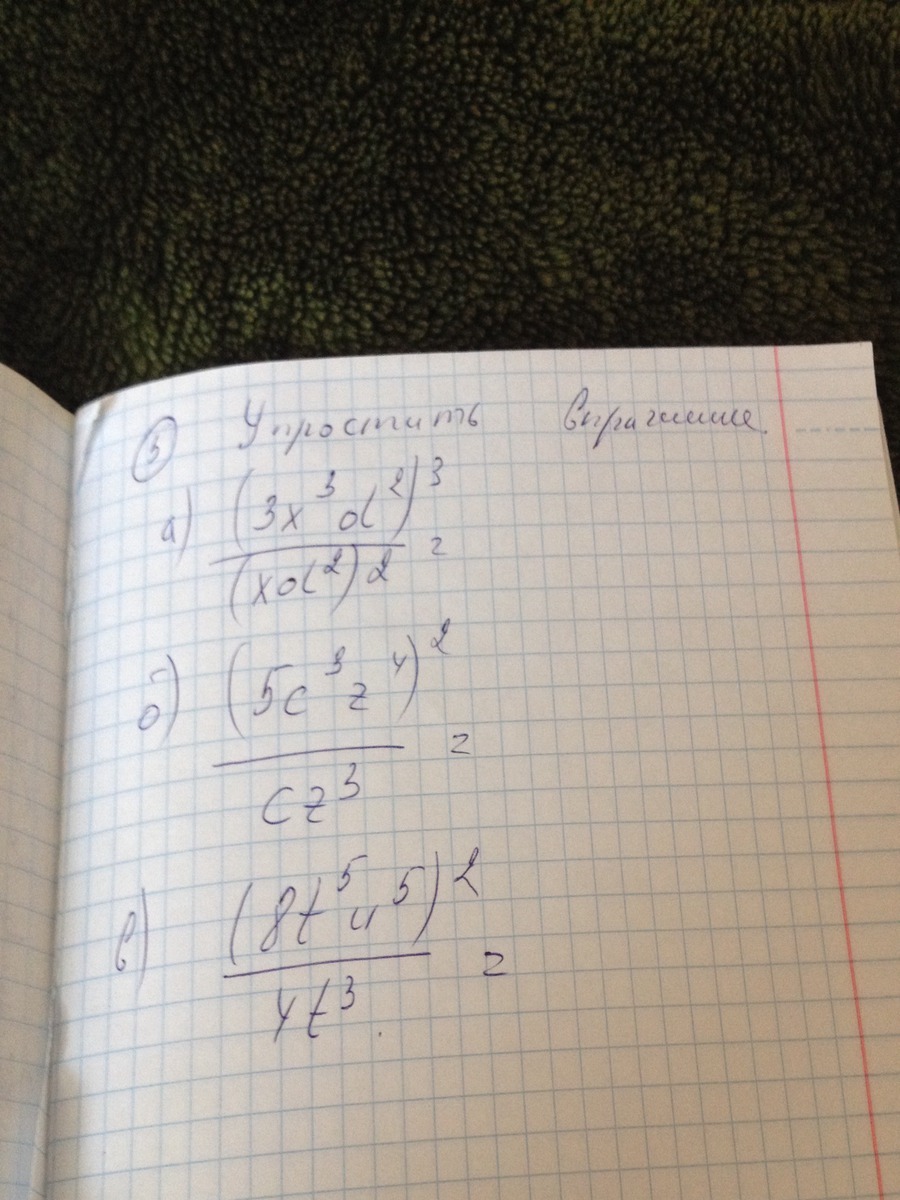 5 Упростить выражение.
а) (3x³d²)³
(xd²)² =
б) (5c³z⁴)² =
cz³
в) (8t⁵u⁵)² =
4t³